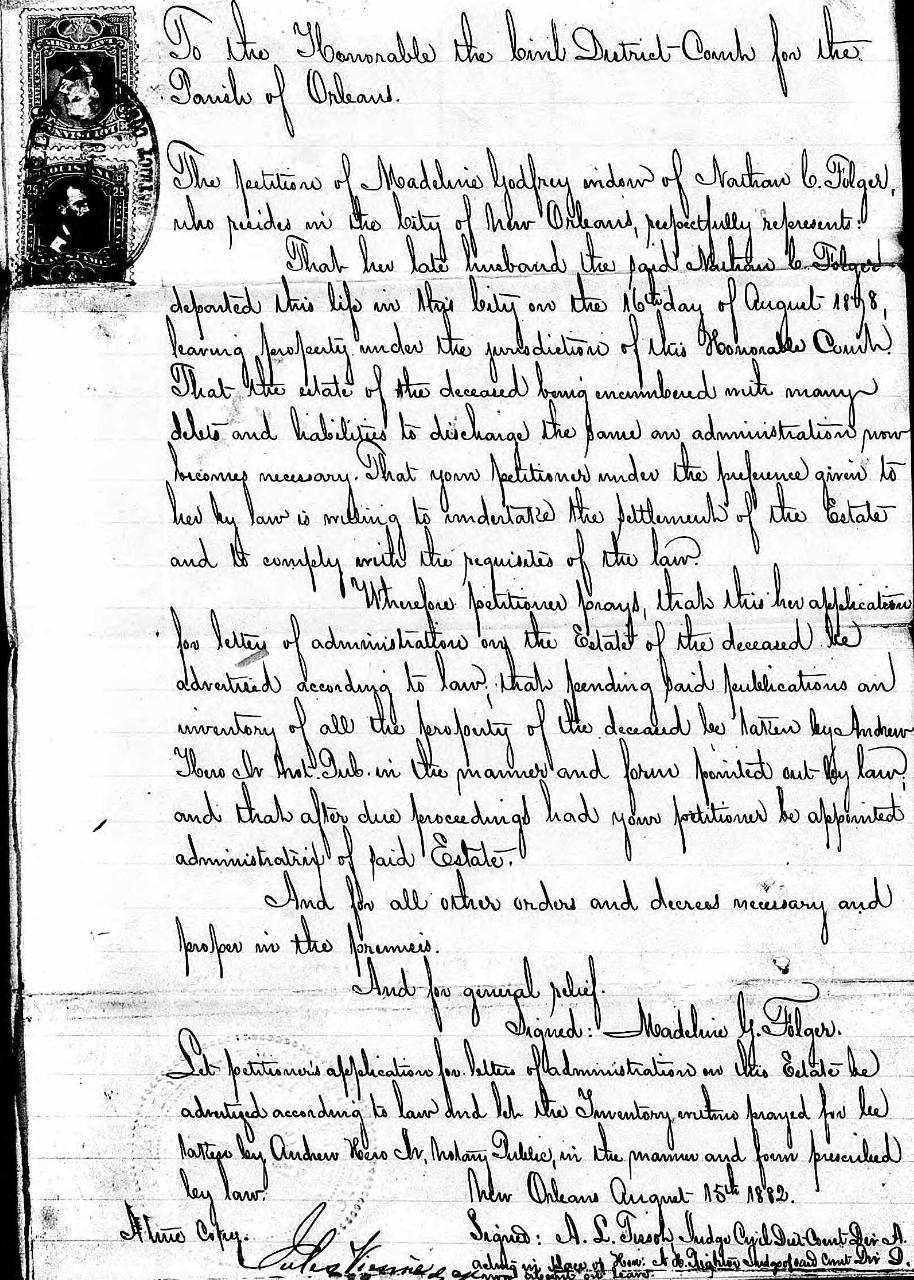 To the Honorable the Civil District Court for the
Parish of Orleans.
The petition of Madeline Godfrey widow of Nathan C. Folger,
who resides in the City of New Orleans, respectfully represents:
That her late husband the said Nathan C. Folger
departed this life in this City on the 16th day of August 1878,
leaving property under the jurisdiction of this Honorable Court.
That the estate of the deceased being encumbered with many
debts and liabilities to discharge the same an administration now
becomes necessary. That your petitioner under the preference given to
her by law is willing to undertake the settlement of the Estate
and to comply with the requisites of the law.
Wherefore petitioner prays, that this her application
for letters of administration on the Estate of the deceased be
advertised according to law; that pending said publications an
inventory of all the property of the deceased be taken by Andrew
Hero Jr Not. Pub. in the manner and form pointed out by law,
and that after due proceedings had your petitioner be appointed
administratrix of said Estate.
And for all other orders and decrees necessary and
proper in the premeis.
And for general relief.
Signed: Madeline G. Folger.
Let petitioner's application for letters of administration on this Estate be
advertized according to law and let the Inventory prayed for be
taken by Andrew Hero Jr, Notary Public, in the manner and form prescribed
by law.
New Orleans August 15th 1882.
A true Copy.
Signed: A. L. Tissot Judge Civil Dist Court Div A.
acting in place of Hon: Judge of said Court Div D.
now absent on leave.
25 25